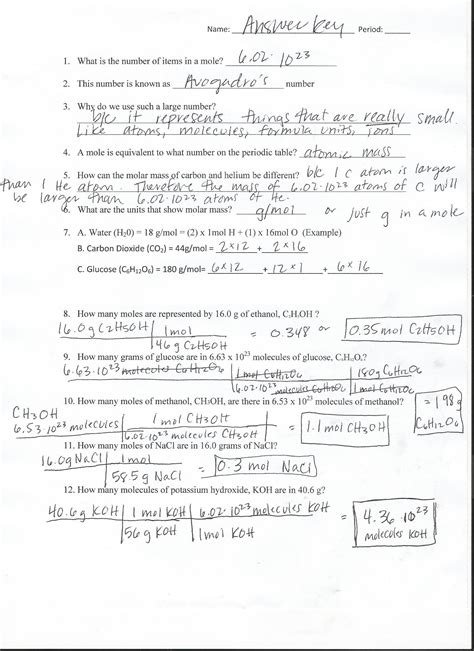 Name: Answer key Period:
1. What is the number of items in a mole? 6.02 · 10²³
2. This number is known as Avogadro's number
3. Why do we use such a large number?
b/c it represents things that are really small.
Like atoms, molecules, formula units, ions
4. A mole is equivalent to what number on the periodic table? atomic mass
5. How can the molar mass of carbon and helium be different? b/c 1 C atom is larger
than 1 He atom. Therefore the mass of 6.02·10²³ atoms of C will
be larger than 6.02·10²³ atoms of He.
6. What are the units that show molar mass? g/mol or just g in a mole
7. A. Water (H20) = 18 g/mol = (2) x 1mol H + (1) x 16mol O (Example)
B. Carbon Dioxide (CO₂) = 44g/mol = 2×12 + 2×16
C. Glucose (C₆H₁₂O₆) = 180 g/mol= 6×12 + 12×1 + 6×16
8. How many moles are represented by 16.0 g of ethanol, C₂H₅OH ?
16.0g C2H5OH | 1mol = 0.348 or 0.35mol C2H5OH
46g C2H5OH
9. How many grams of glucose are in 6.63 x 10²³ molecules of glucose, C₆H₁₂O₆?
6.63·10²³ molecules C6H12O6 | 1mol C6H12O6 | 180g C6H12O6
6.02·10²³ molecules C6H12O6 | 1mol C6H12O6
= 198g C6H12O6
10. How many moles of methanol, CH₃OH, are there in 6.53 x 10²³ molecules of methanol?
CH3OH
6.53·10²³ molecules | 1 mol CH3OH = 1.1 mol CH3OH
6.02·10²³ molecules CH3OH
11. How many moles of NaCl are in 16.0 grams of NaCl?
16.0g NaCl | 1mol = 0.3 mol NaCl
58.5g NaCl
12. How many molecules of potassium hydroxide, KOH are in 40.6 g?
40.6g KOH | 1 mol KOH | 6.02·10²³ molecules KOH = 4.36 · 10²³ molecules KOH
56g KOH | 1mol KOH